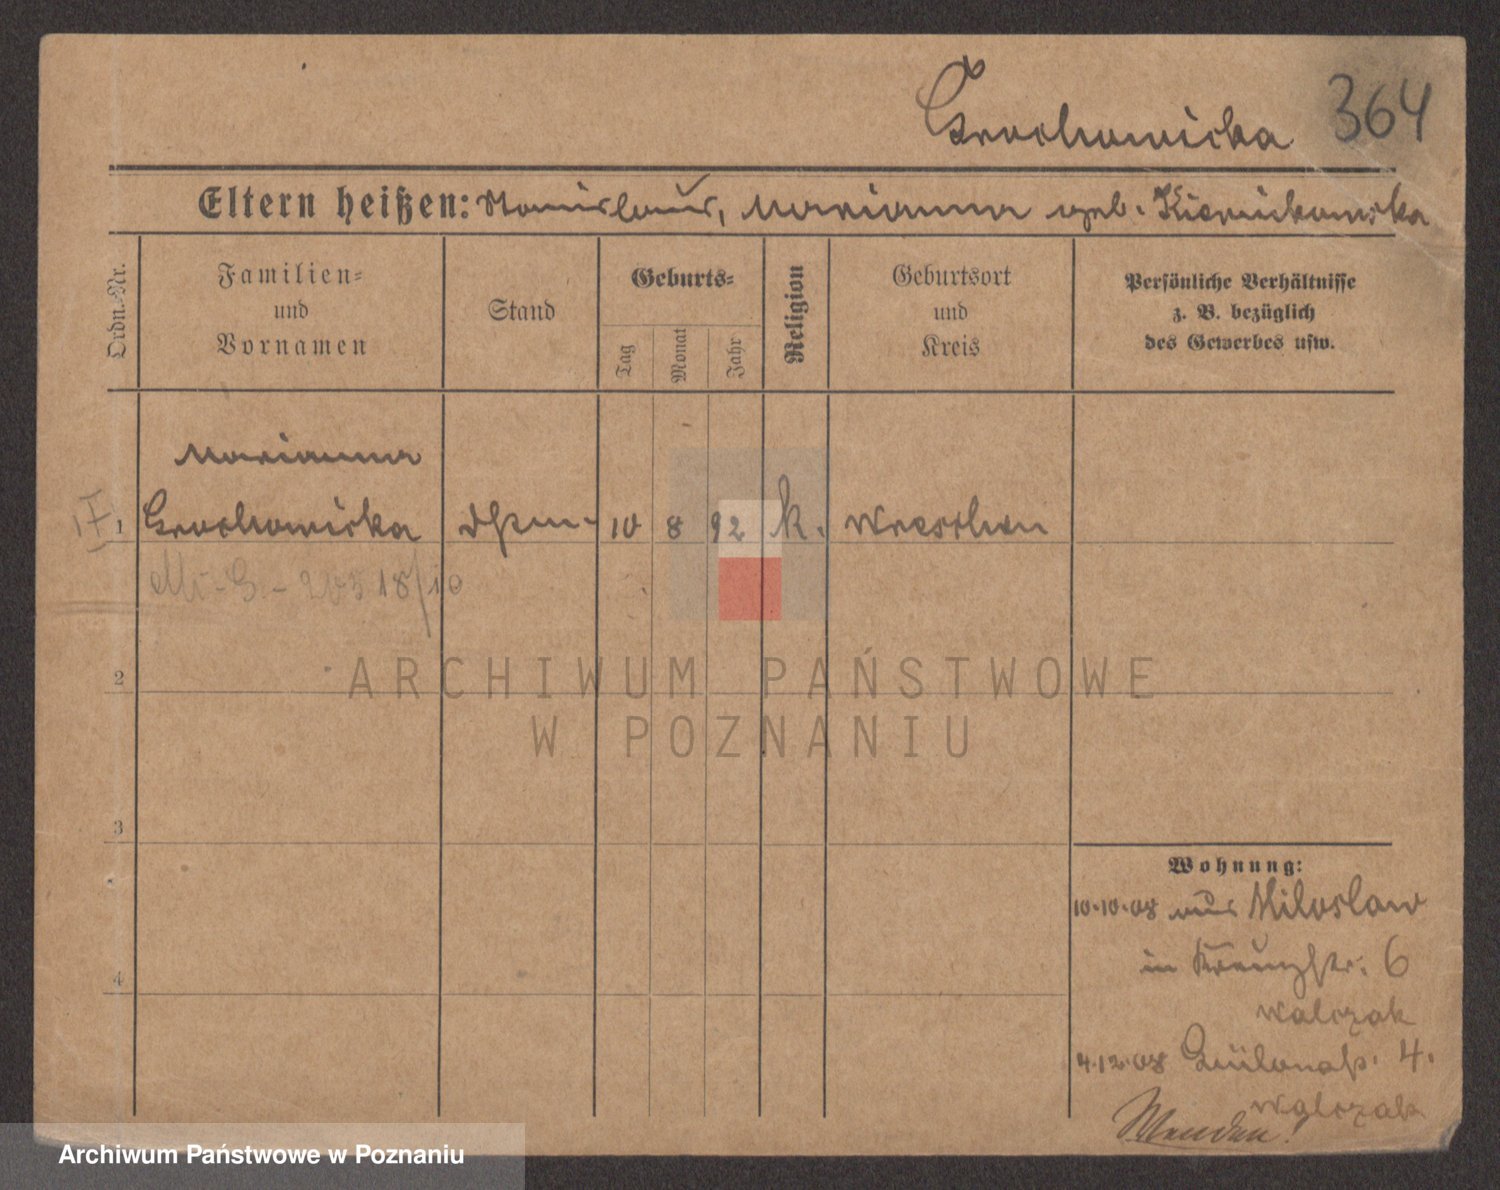 Grochowicka 364
Eltern heißen: Stanislaus, Marianna geb.
Ordn.-Nr.
Familien-
und
Vornamen
Stand
Geburts-
Tag
Monat
Jahr
Religion
Geburtsort
und
Kreis
Persönliche Verhältnisse
z. B. bezüglich
des Gewerbes usw.
Marianna
1 Grochowicka 10 8 92 k. Wreschen
2
3
4
Wohnung:
10.10.08 aus Miloslaw
in Kreuzstr. 6
Walczak
4.12.08 4.
Walczak
ARCHIWUM PAŃSTWOWE
W POZNANIU
Archiwum Państwowe w Poznaniu